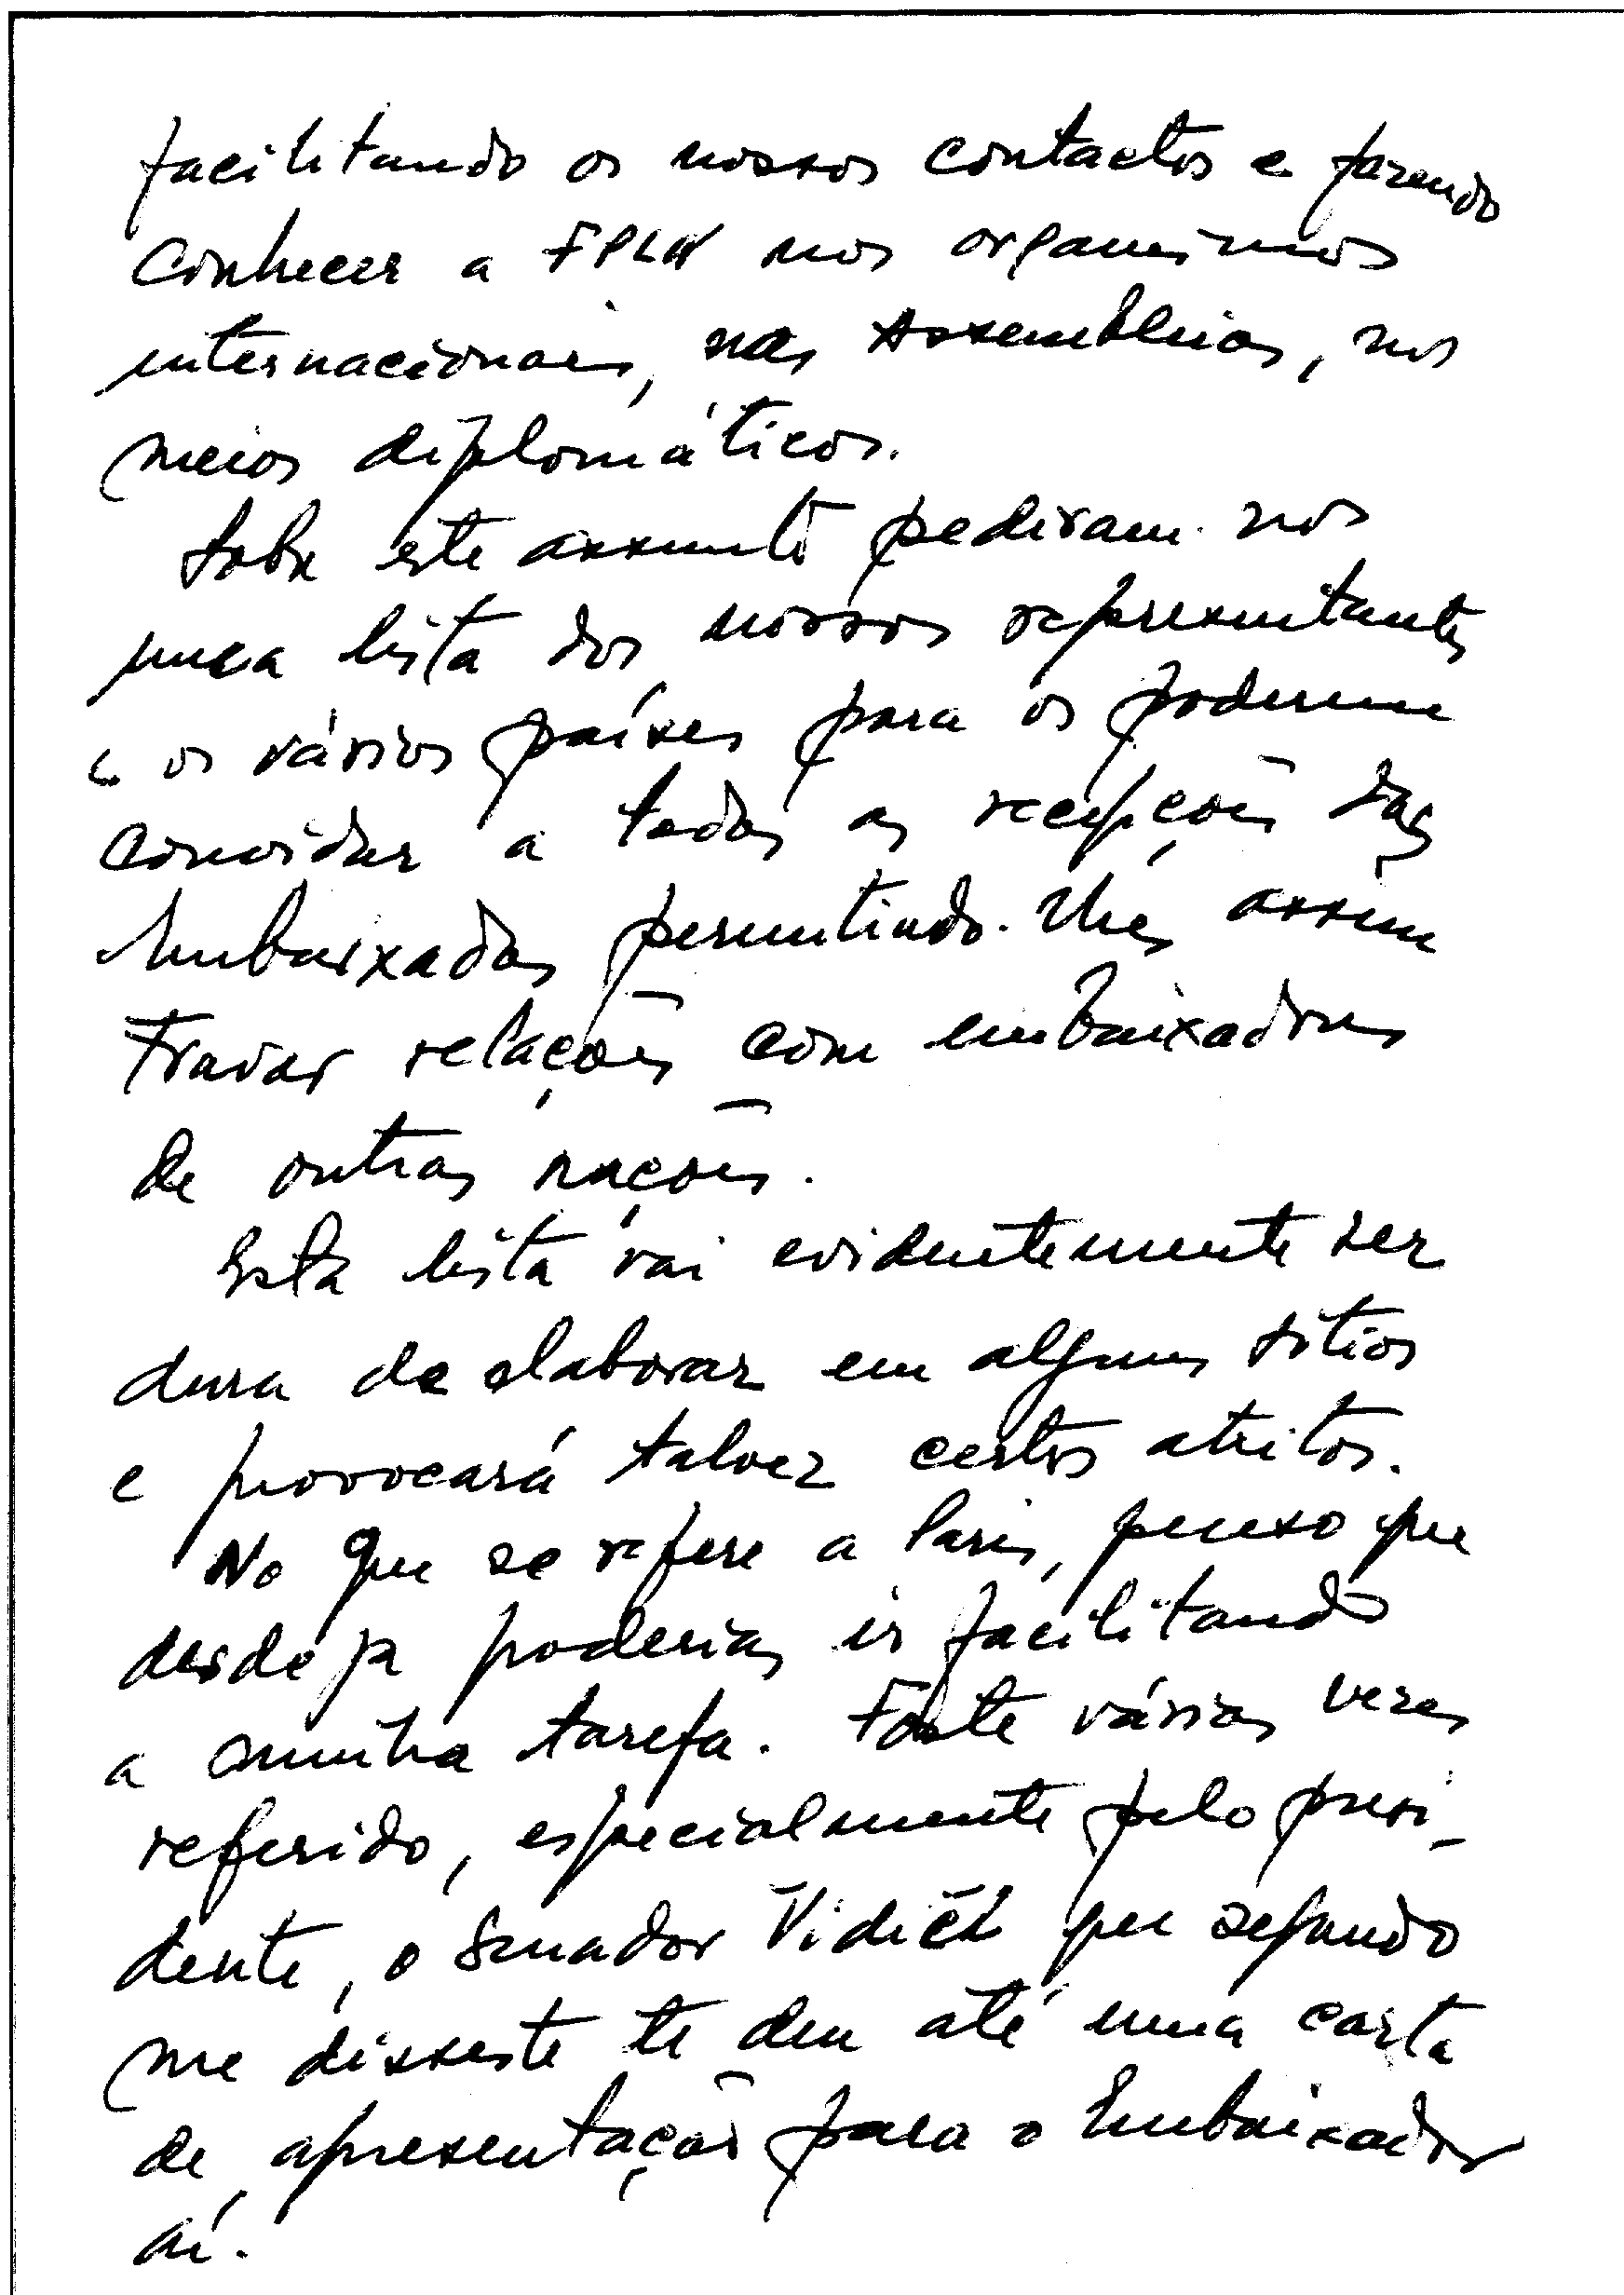 facilitando os nossos contactos e fazendo
conhecer a FPLN nos organismos
internacionais, nas Assembleias, nos
meios diplomáticos.
Sobre este assunto pediram-nos
uma lista dos nossos representantes
e os vários países para os poderem
convidar a todas as recepções das
Embaixadas permitindo-lhes assim
travar relações com embaixadores
de outras nações.
Esta lista vai evidentemente ser
dura de elaborar em alguns sítios
e provocará talvez certos atritos.
No que se refere a Paris, penso que
desde já poderias ir facilitando
a minha tarefa. Foste várias vezes
referido, especialmente pelo presi-
dente, o Senador Vidič que segundo
me disseste te deu até uma carta
de apresentação para o Embaixador
aí.